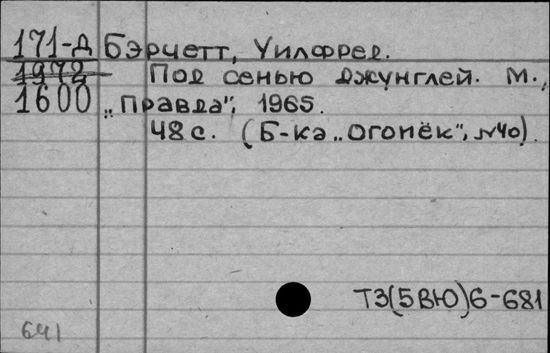 171-Д Бэрчетт, Уилфред.
1972 Под сенью джунглей. М.,
1600 „Правда", 1965.
48 с. (Б-ка „Огонёк", №40).
Т3(5ВЮ)6-681
641